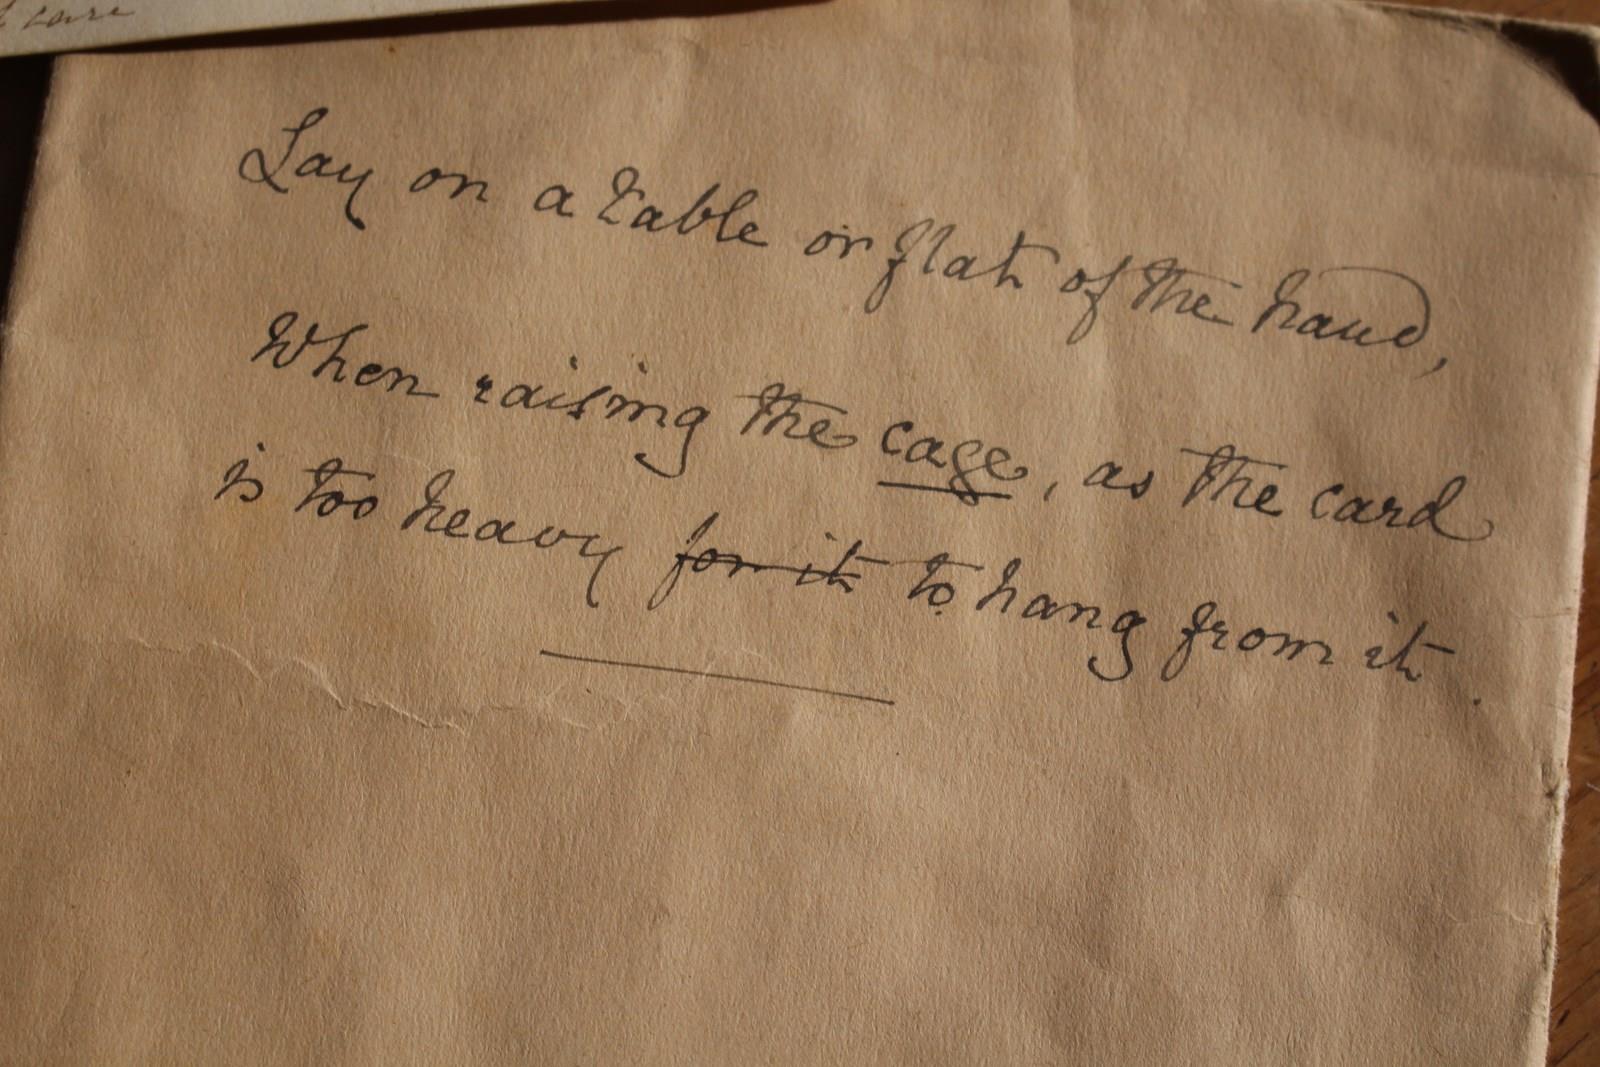 care
Lay on a table or flat of the hand,
When raising the cage, as the card
is too heavy for it to hang from it.